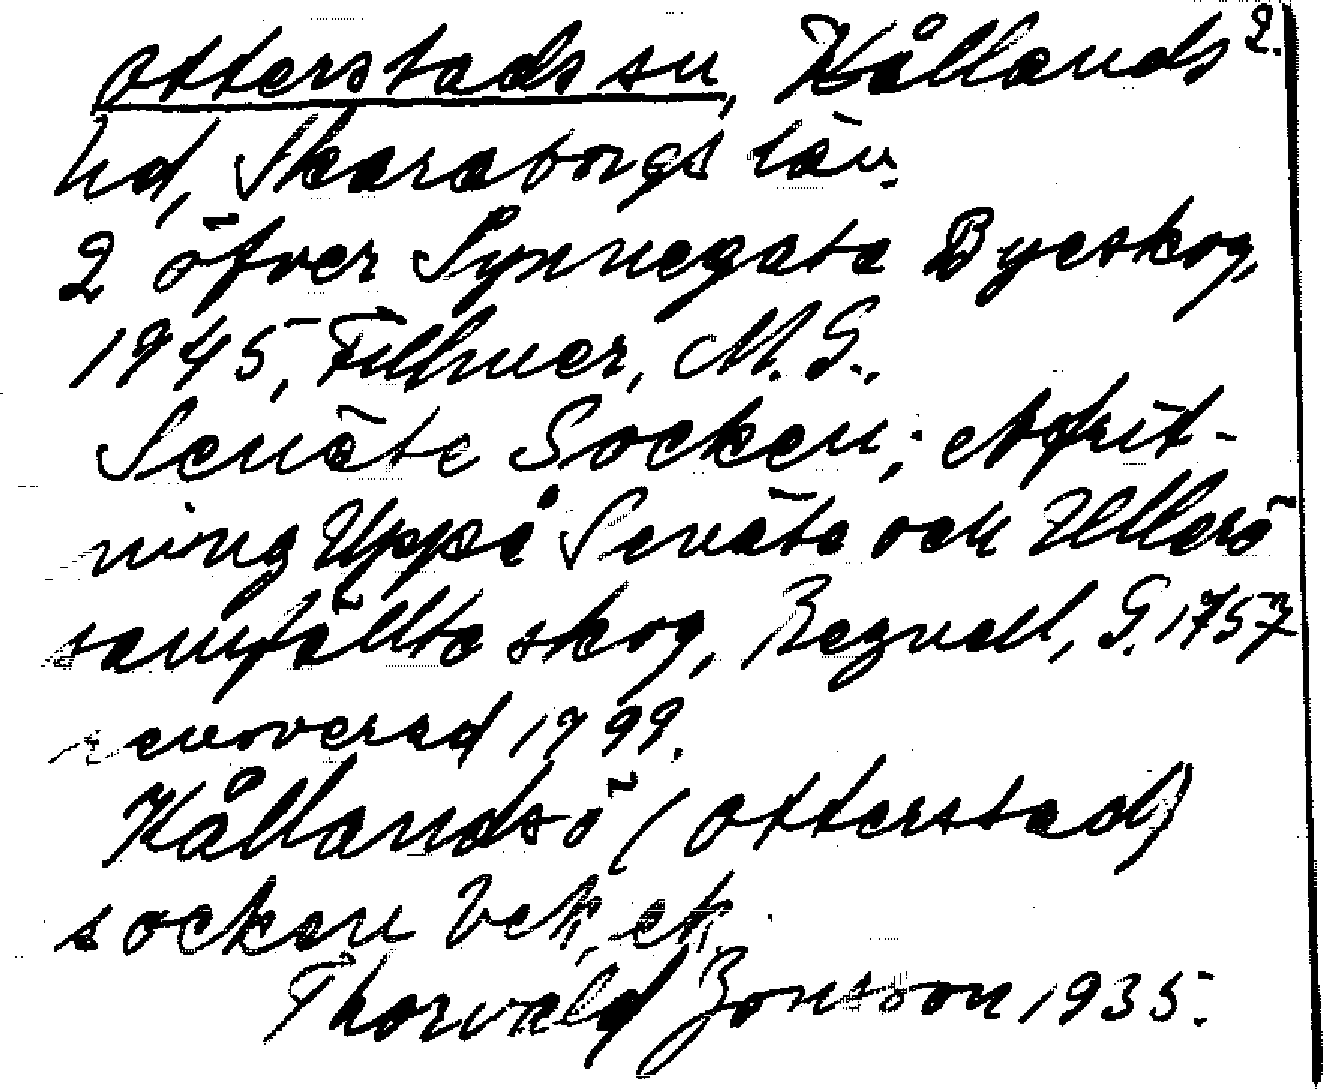 Otterstads sn, Kållands 2.
hd, Skaraborgs län.
2 öfver Synnegata Byeskog,
1945, Fillmer, M. G.,
Senäte Socken; Afrit-
ning Uppå Senäte och Ullerö
samfällte skog, Regnell, G. 1757
renoverad 1799.
Kållandsö (Otterstad)
socken Vek, ek,
Thorvald Jonsson 1935.